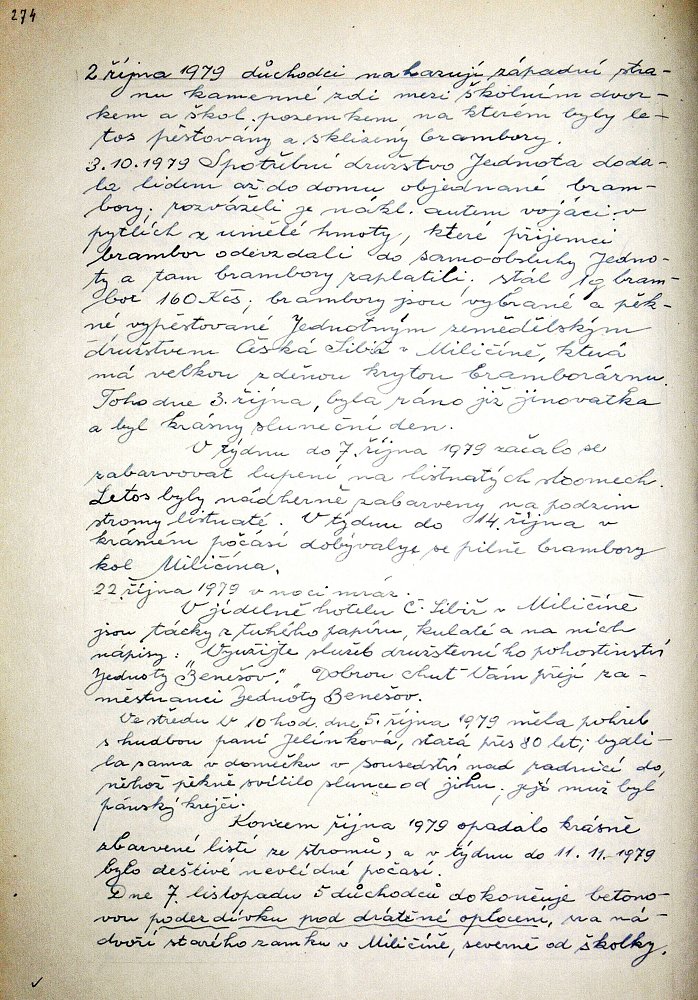 274
2 října 1979 důchodci nahazují západní stra-
nu kamenné zdi mezi školním dvor-
kem a škol. pozemkem na kterém byly le-
tos pěstovány a sklizeny brambory.
3.10.1979 Spotřební družstvo Jednota doda-
la lidem až do domu objednané bram-
bory; rozváželi je nákl. autem vojáci v
pytlích z umělé hmoty, které příjemci
brambor odevzdali do samoobsluhy Jedno-
ty a tam brambory zaplatili. stál 1q bram-
bor 160 Kčs; brambory jsou vybrané a pěk-
né vypěstované Jednotným zemědělským
družstvem Česká Sibiř v Miličíně, která
má velkou zděnou krytou bramborárnu.
Toho dne 3. října, byla ráno již jinovatka
a byl krásný sluneční den.
V týdnu do 7. října 1979 začalo se
zabarvovat lupení na listnatých stromech.
Letos byly nádherně zabarveny na podzim
stromy listnaté. V týdnu do 14. října v
krásném počasí dobývaly se pilně brambory
kol Miličína.
22. října 1979 v noci mráz.
V jídelně hotelu Č. Sibiř v Miličíně
jsou tácky z tuhého papíru, kulaté a na nich
nápisy: Využijte služeb družstevného pohostinství
Jednoty "Benešov." Dobrou chuť Vám přejí za-
městnanci Jednoty Benešov.
Ve středu v 10 hod. dne 5. října 1979 měla pohřeb
s hudbou paní Jelínková, stará přes 80 let; bydli-
la sama v domečku v sousedství nad radnicí do,
něhož pěkně svítilo slunce od jihu; její muž byl
pánský krejčí.
Koncem října 1979 opadalo krásně
zbarvené listí ze stromů, a v týdnu do 11. 11. 1979
bylo deštivé nevlídné počasí.
Dne 7. listopadu 5 důchodců dokončuje betono-
vou podezdívku pod drátěné oplocení, na ná-
dvoří starého zamku v Miličíně, severně od školky.